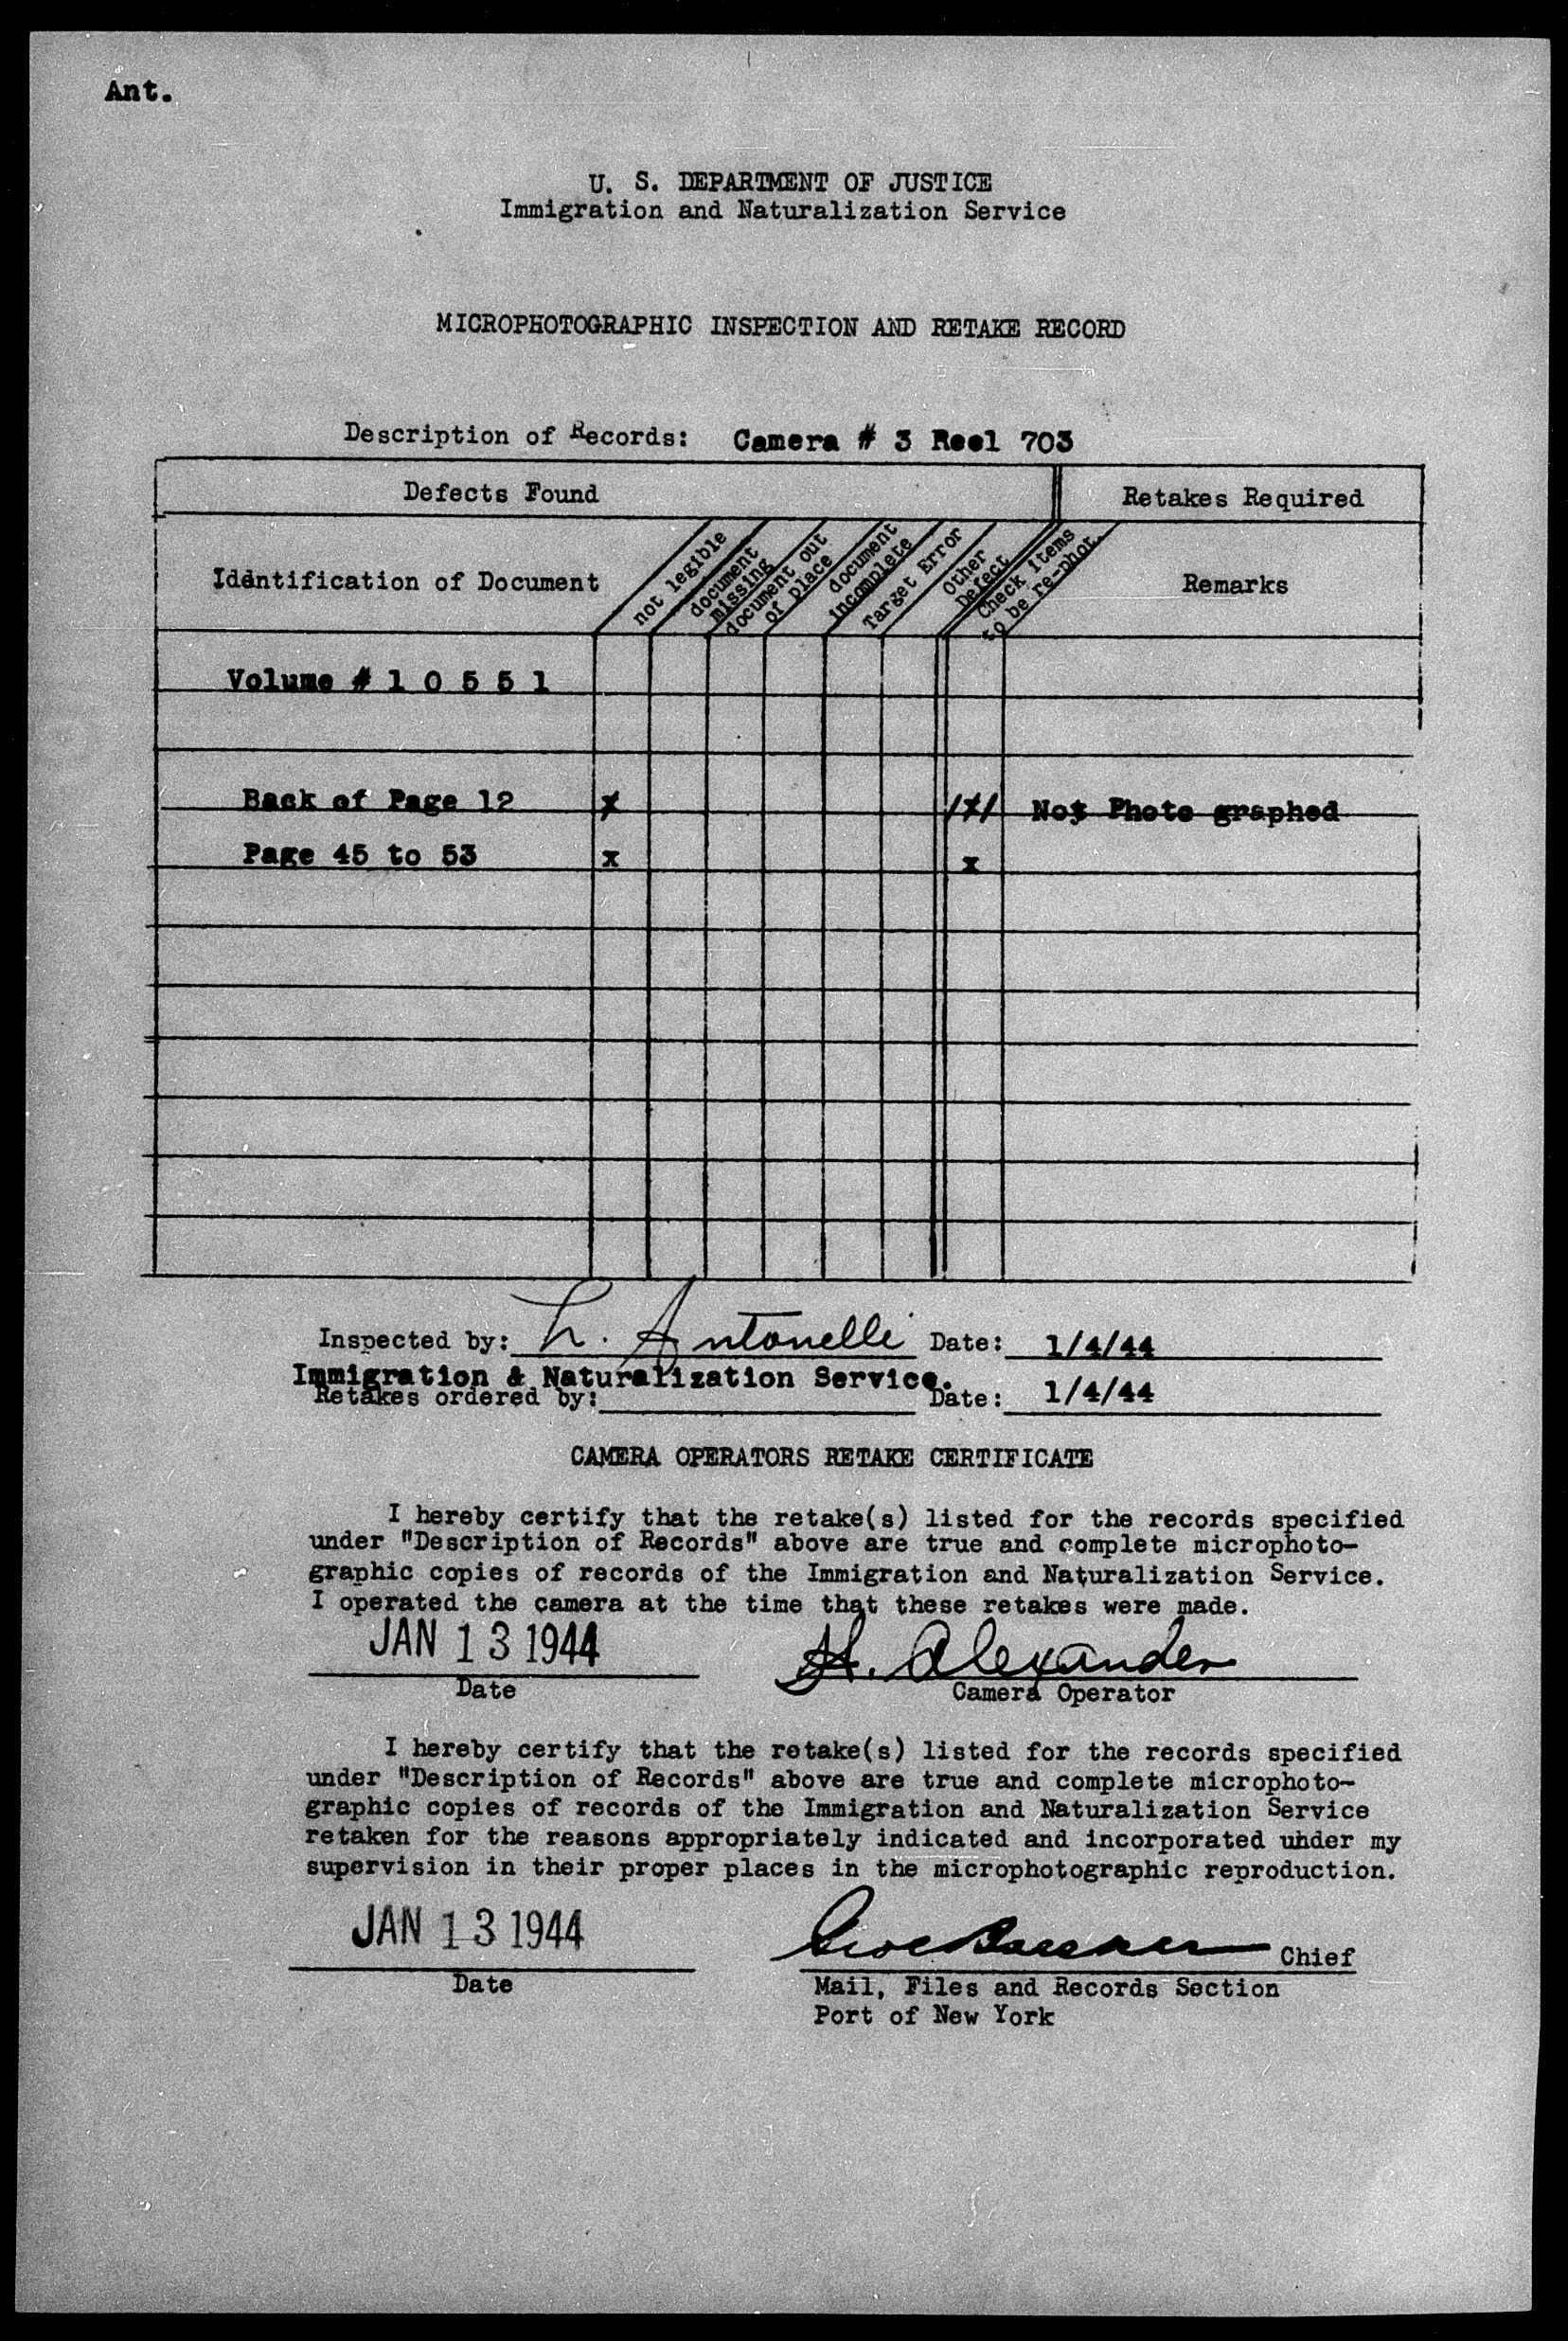 Ant.
U. S. DEPARTMENT OF JUSTICE
Immigration and Naturalization Service
MICROPHOTOGRAPHIC INSPECTION AND RETAKE RECORD
Description of Records: Camera # 3 Reel 703
Defects Found
Retakes Required
Identification of Document
not legible
document
missing
document out
of place
document
incomplete
Target Error
Other
Defect
Check items
to be re-phot.
Remarks
Volume # 1 0 5 5 1
Back of Page 12 x /x/ Not Photo graphed
Page 45 to 53 x x
Inspected by: L. Antonelli Date: 1/4/44
Immigration & Naturalization Service.
Retakes ordered by: Date: 1/4/44
CAMERA OPERATORS RETAKE CERTIFICATE
I hereby certify that the retake(s) listed for the records specified
under "Description of Records" above are true and complete microphoto-
graphic copies of records of the Immigration and Naturalization Service.
I operated the camera at the time that these retakes were made.
JAN 13 1944 H. Alexander
Date Camera Operator
I hereby certify that the retake(s) listed for the records specified
under "Description of Records" above are true and complete microphoto-
graphic copies of records of the Immigration and Naturalization Service
retaken for the reasons appropriately indicated and incorporated under my
supervision in their proper places in the microphotographic reproduction.
JAN 13 1944 Chief
Date Mail, Files and Records Section
Port of New York